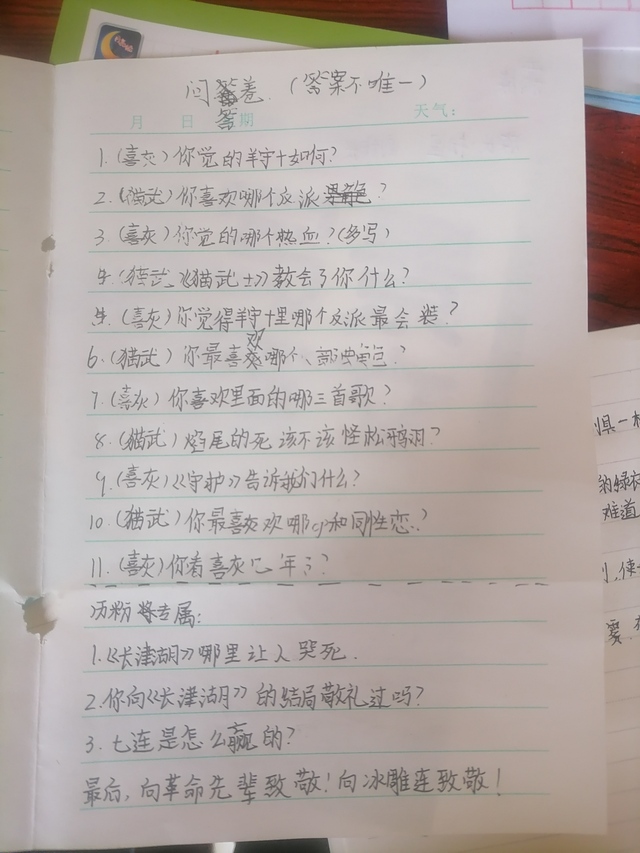 问答卷（答案不唯一）
月 日 星期 天气：
1.（喜灰）你觉的羊守十如何？
2.（猫武）你喜欢哪个反派？
3.（喜灰）你觉的哪个热血？（多写）
4.（猫武）《猫武士》教会了你什么？
5.（喜灰）你觉得羊守十里哪个反派最会装？
6.（猫武）你最喜欢哪个、角色？
7.（喜灰）你喜欢里面的哪三首歌？
8.（猫武）焰尾的死该不该怪松鸦羽？
9.（喜灰）《守护》告诉我们什么？
10.（猫武）你最喜欢哪cp和同性恋？
11.（喜灰）你看喜灰几年了？
历粉专属：
1.《长津湖》哪里让人哭死.
2.你向《长津湖》的结局敬礼过吗？
3.七连是怎么赢的？
最后，向革命先辈致敬！向冰雕连致敬！
惧一
的绿衣
难道